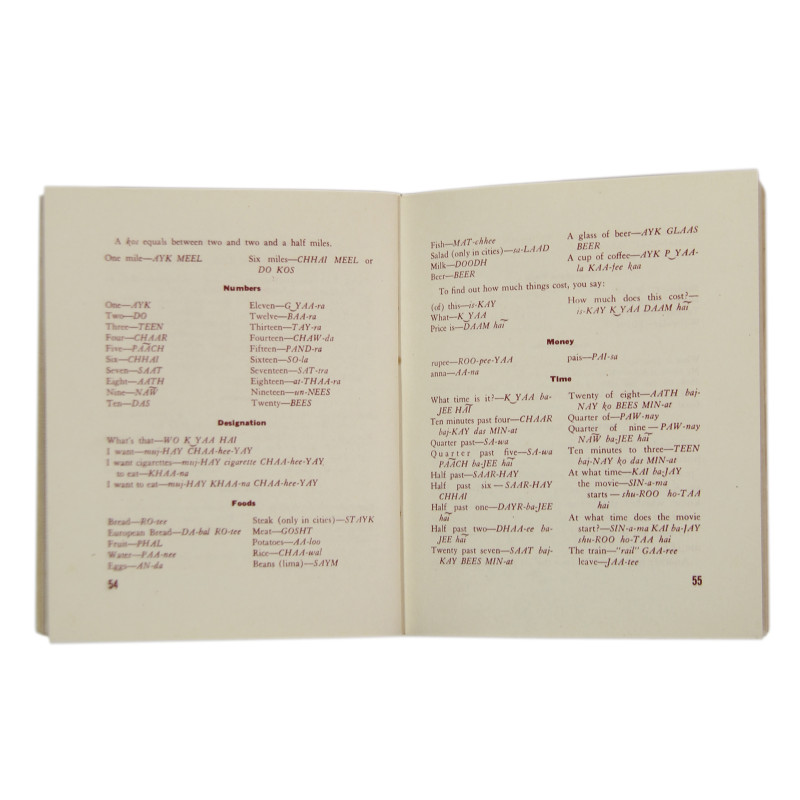 A kos equals between two and two and a half miles.
One mile—AYK MEEL
Six miles—CHHAI MEEL or
DO KOS
Numbers
One—AYK
Two—DO
Three—TEEN
Four—CHAAR
Five—PAACH
Six—CHHAI
Seven—SAAT
Eight—AATH
Nine—NAW
Ten—DAS
Eleven—G_YAA-ra
Twelve—BAA-ra
Thirteen—TAY-ra
Fourteen—CHAW-da
Fifteen—PAND-ra
Sixteen—SO-la
Seventeen—SAT-tra
Eighteen—at-THAA-ra
Nineteen—un-NEES
Twenty—BEES
Designation
What's that—WO K_YAA HAI
I want—muj-HAY CHAA-hee-YAY
I want cigarettes—muj-HAY cigarette CHAA-hee-YAY
to eat—KHAA-na
I want to eat—muj-HAY KHAA-na CHAA-hee-YAY
Foods
Bread—RO-tee
European Bread—DA-bal RO-tee
Fruit—PHAL
Water—PAA-nee
Eggs—AN-da
Steak (only in cities)—STAYK
Meat—GOSHT
Potatoes—AA-loo
Rice—CHAA-wal
Beans (lima)—SAYM
54
Fish—MAT-chhee
Salad (only in cities)—sa-LAAD
Milk—DOODH
Beer—BEER
A glass of beer—AYK GLAAS
BEER
A cup of coffee—AYK P_YAA-
la KAA-fee kaa
To find out how much things cost, you say:
(of) this—is-KAY
What—K_YAA
Price is—DAAM haĩ
How much does this cost?—
is-KAY K_YAA DAAM haĩ
Money
rupee—ROO-pee-YAA
anna—AA-na
pais—PAI-sa
Time
What time is it?—K_YAA ba-
JEE HAĨ
Ten minutes past four—CHAAR
baj-KAY das MIN-at
Quarter past—SA-wa
Quarter past five—SA-wa
PAÃCH ba-JEE haĩ
Half past—SAAR-HAY
Half past six—SAAR-HAY
CHHAI
Half past one—DAYR-ba-JEE
haĩ
Half past two—DHAA-ee ba-
JEE haĩ
Twenty past seven—SAAT baj-
KAY BEES MIN-at
Twenty of eight—AATH baj-
NAY ko BEES MIN-at
Quarter of—PAW-nay
Quarter of nine—PAW-nay
NAW ba-JEE haĩ
Ten minutes to three—TEEN
baj-NAY ko das MIN-at
At what time—KAI ba-JAY
the movie—SIN-a-ma
starts—shu-ROO ho-TAA
hai
At what time does the movie
start?—SIN-a-ma KAI ba-JAY
shu-ROO ho-TAA hai
The train—"rail" GAA-ree
leave—JAA-tee
55